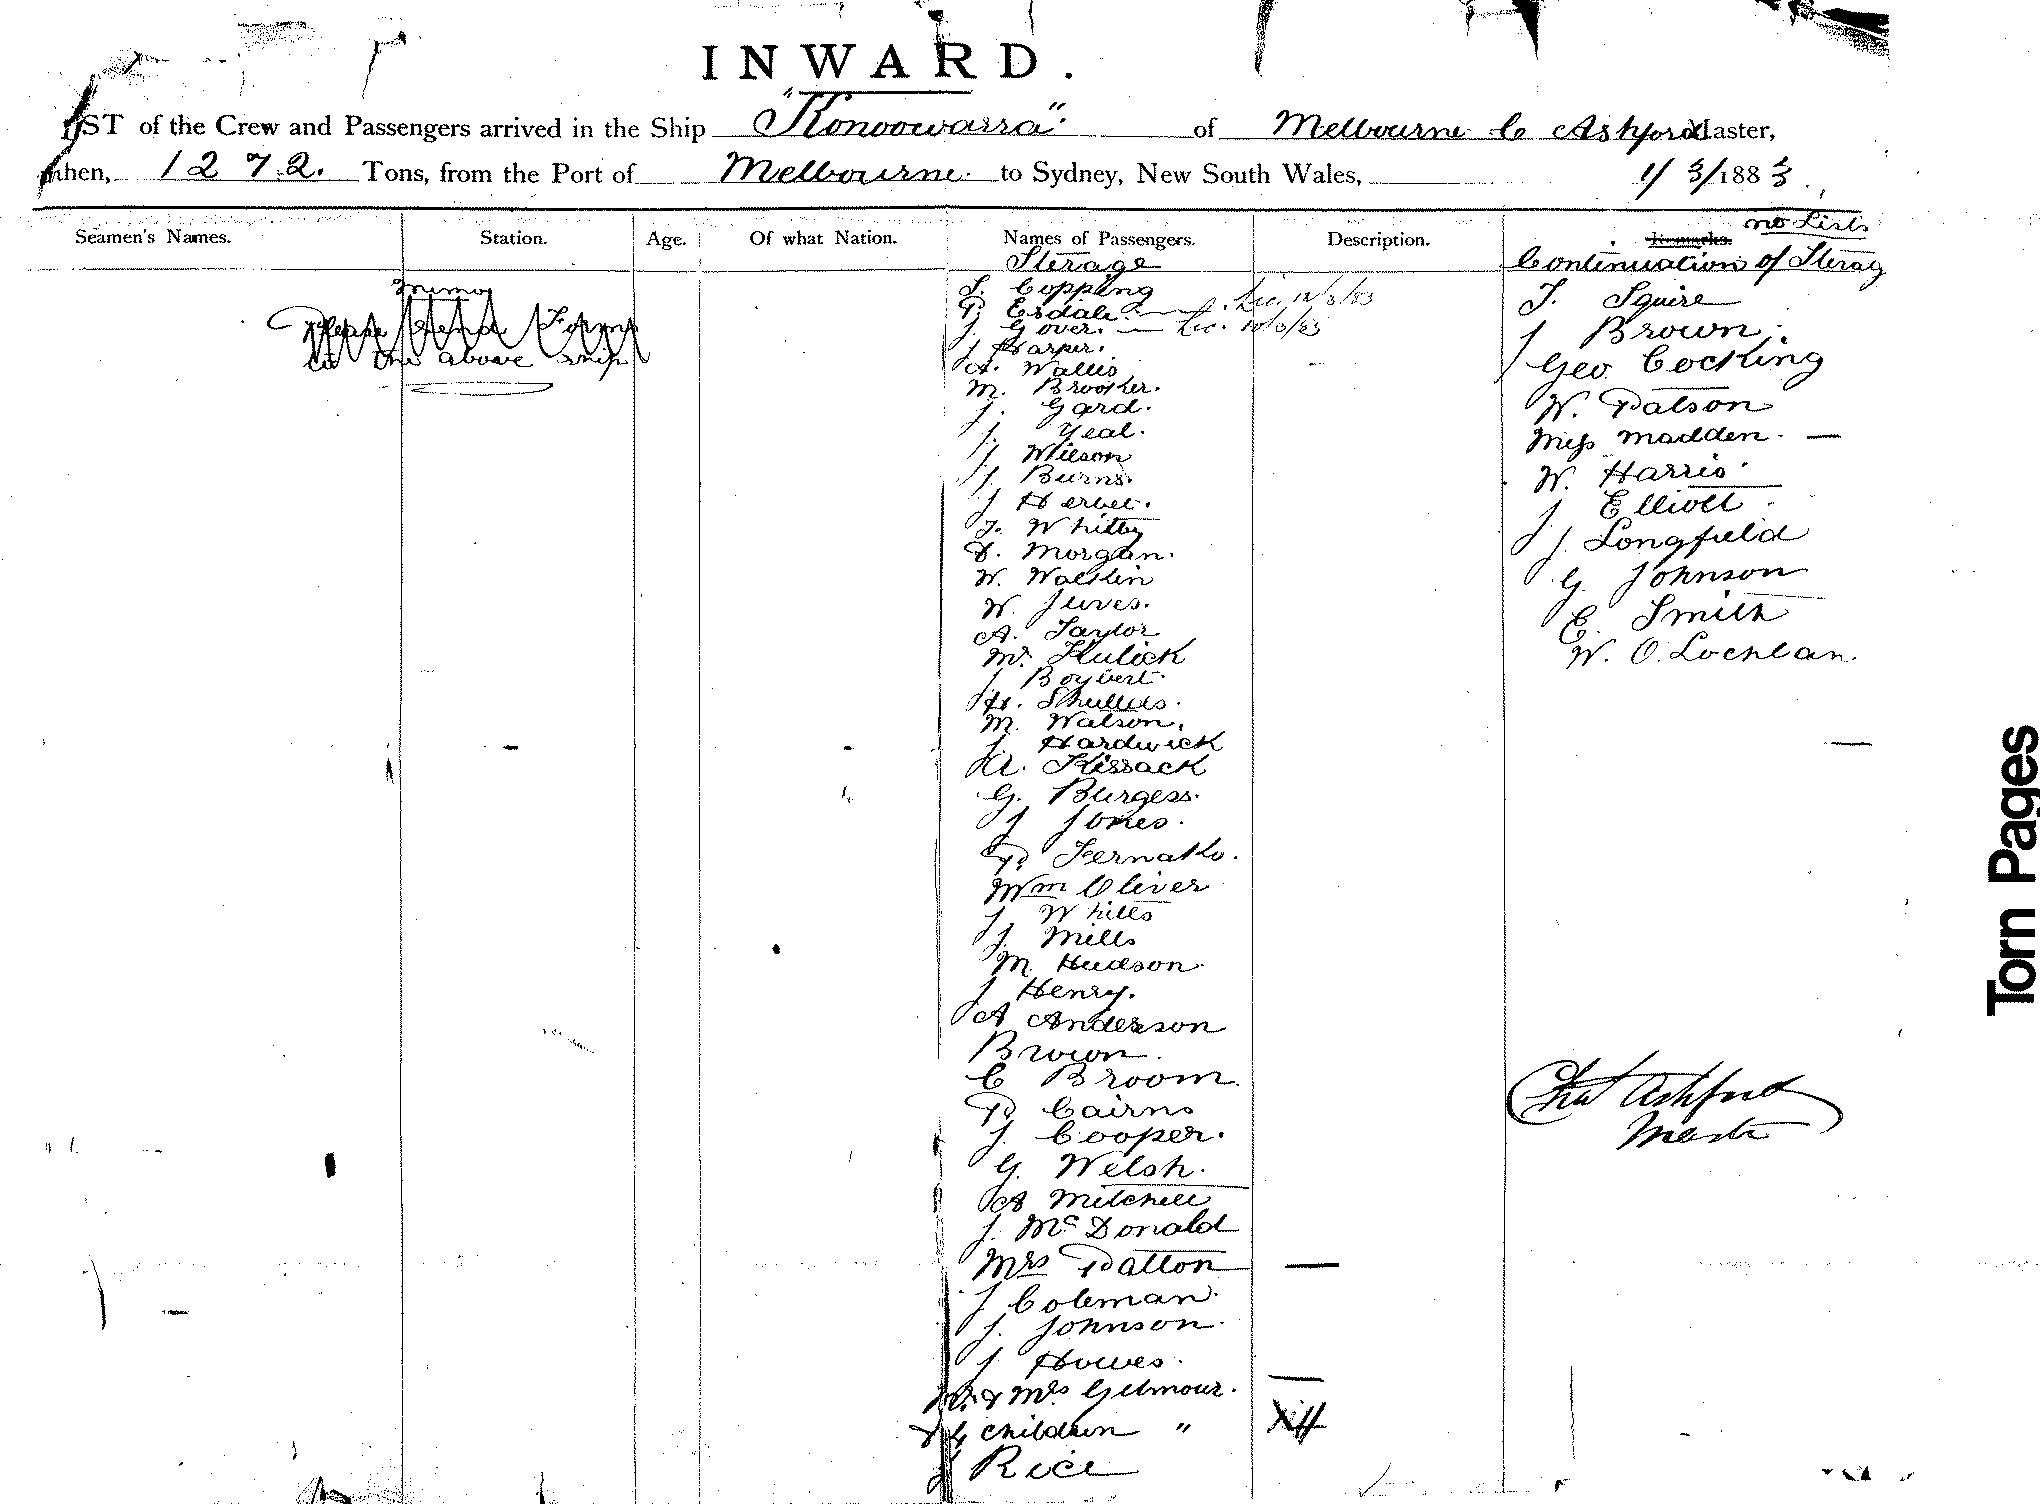 INWARD.
LIST of the Crew and Passengers arrived in the Ship "Konoowarra" of Melbourne C Ashford Master,
Burthen, 1272. Tons, from the Port of Melbourne to Sydney, New South Wales, 1/3/1883
no Lists
Seamen's Names. Station. Age. Of what Nation. Names of Passengers. Description. Remarks.
Sterage
Continuation of Sterag
Memo
Please Send Forms
to the above ship
S. Copping
P. Esdale. Lic. 12/3/83
J. Gover. Lic. 10/3/83
J Harper.
A. Wallis
M. Brooker.
J. Gard.
J. Yeal.
J Wilson
J. Burns.
J Herbet.
J. Whitby
D. Morgan.
W. Walklin
W. Jeeves.
A. Taylor
Mr. Hulick
J Boybert.
H. Shulus.
M. Watson.
J. Hardwick
A. Kissack
G. Burgess.
J Jones.
P. Fernatko.
Wm Oliver
J. Whills
J. Mills
M Hudson
J Henry.
A Anderson
Brown.
C Broom
P Cairns
J. Cooper.
G. Welsh.
A Mitchell
J. McDonald
Mrs Patton
J Coleman
J. Johnson.
J Howes.
Mr. & Mrs Gilmour.
& 4 children "
J Rice
T. Squire
J Brown.
Geo. Cocking
W. Patson
Miss Madden.
W. Harris
J Elliott
J. Longfield
G Johnson
E. Smith
W. O.Lochlan.
Chas Ashford
Master
Torn Pages